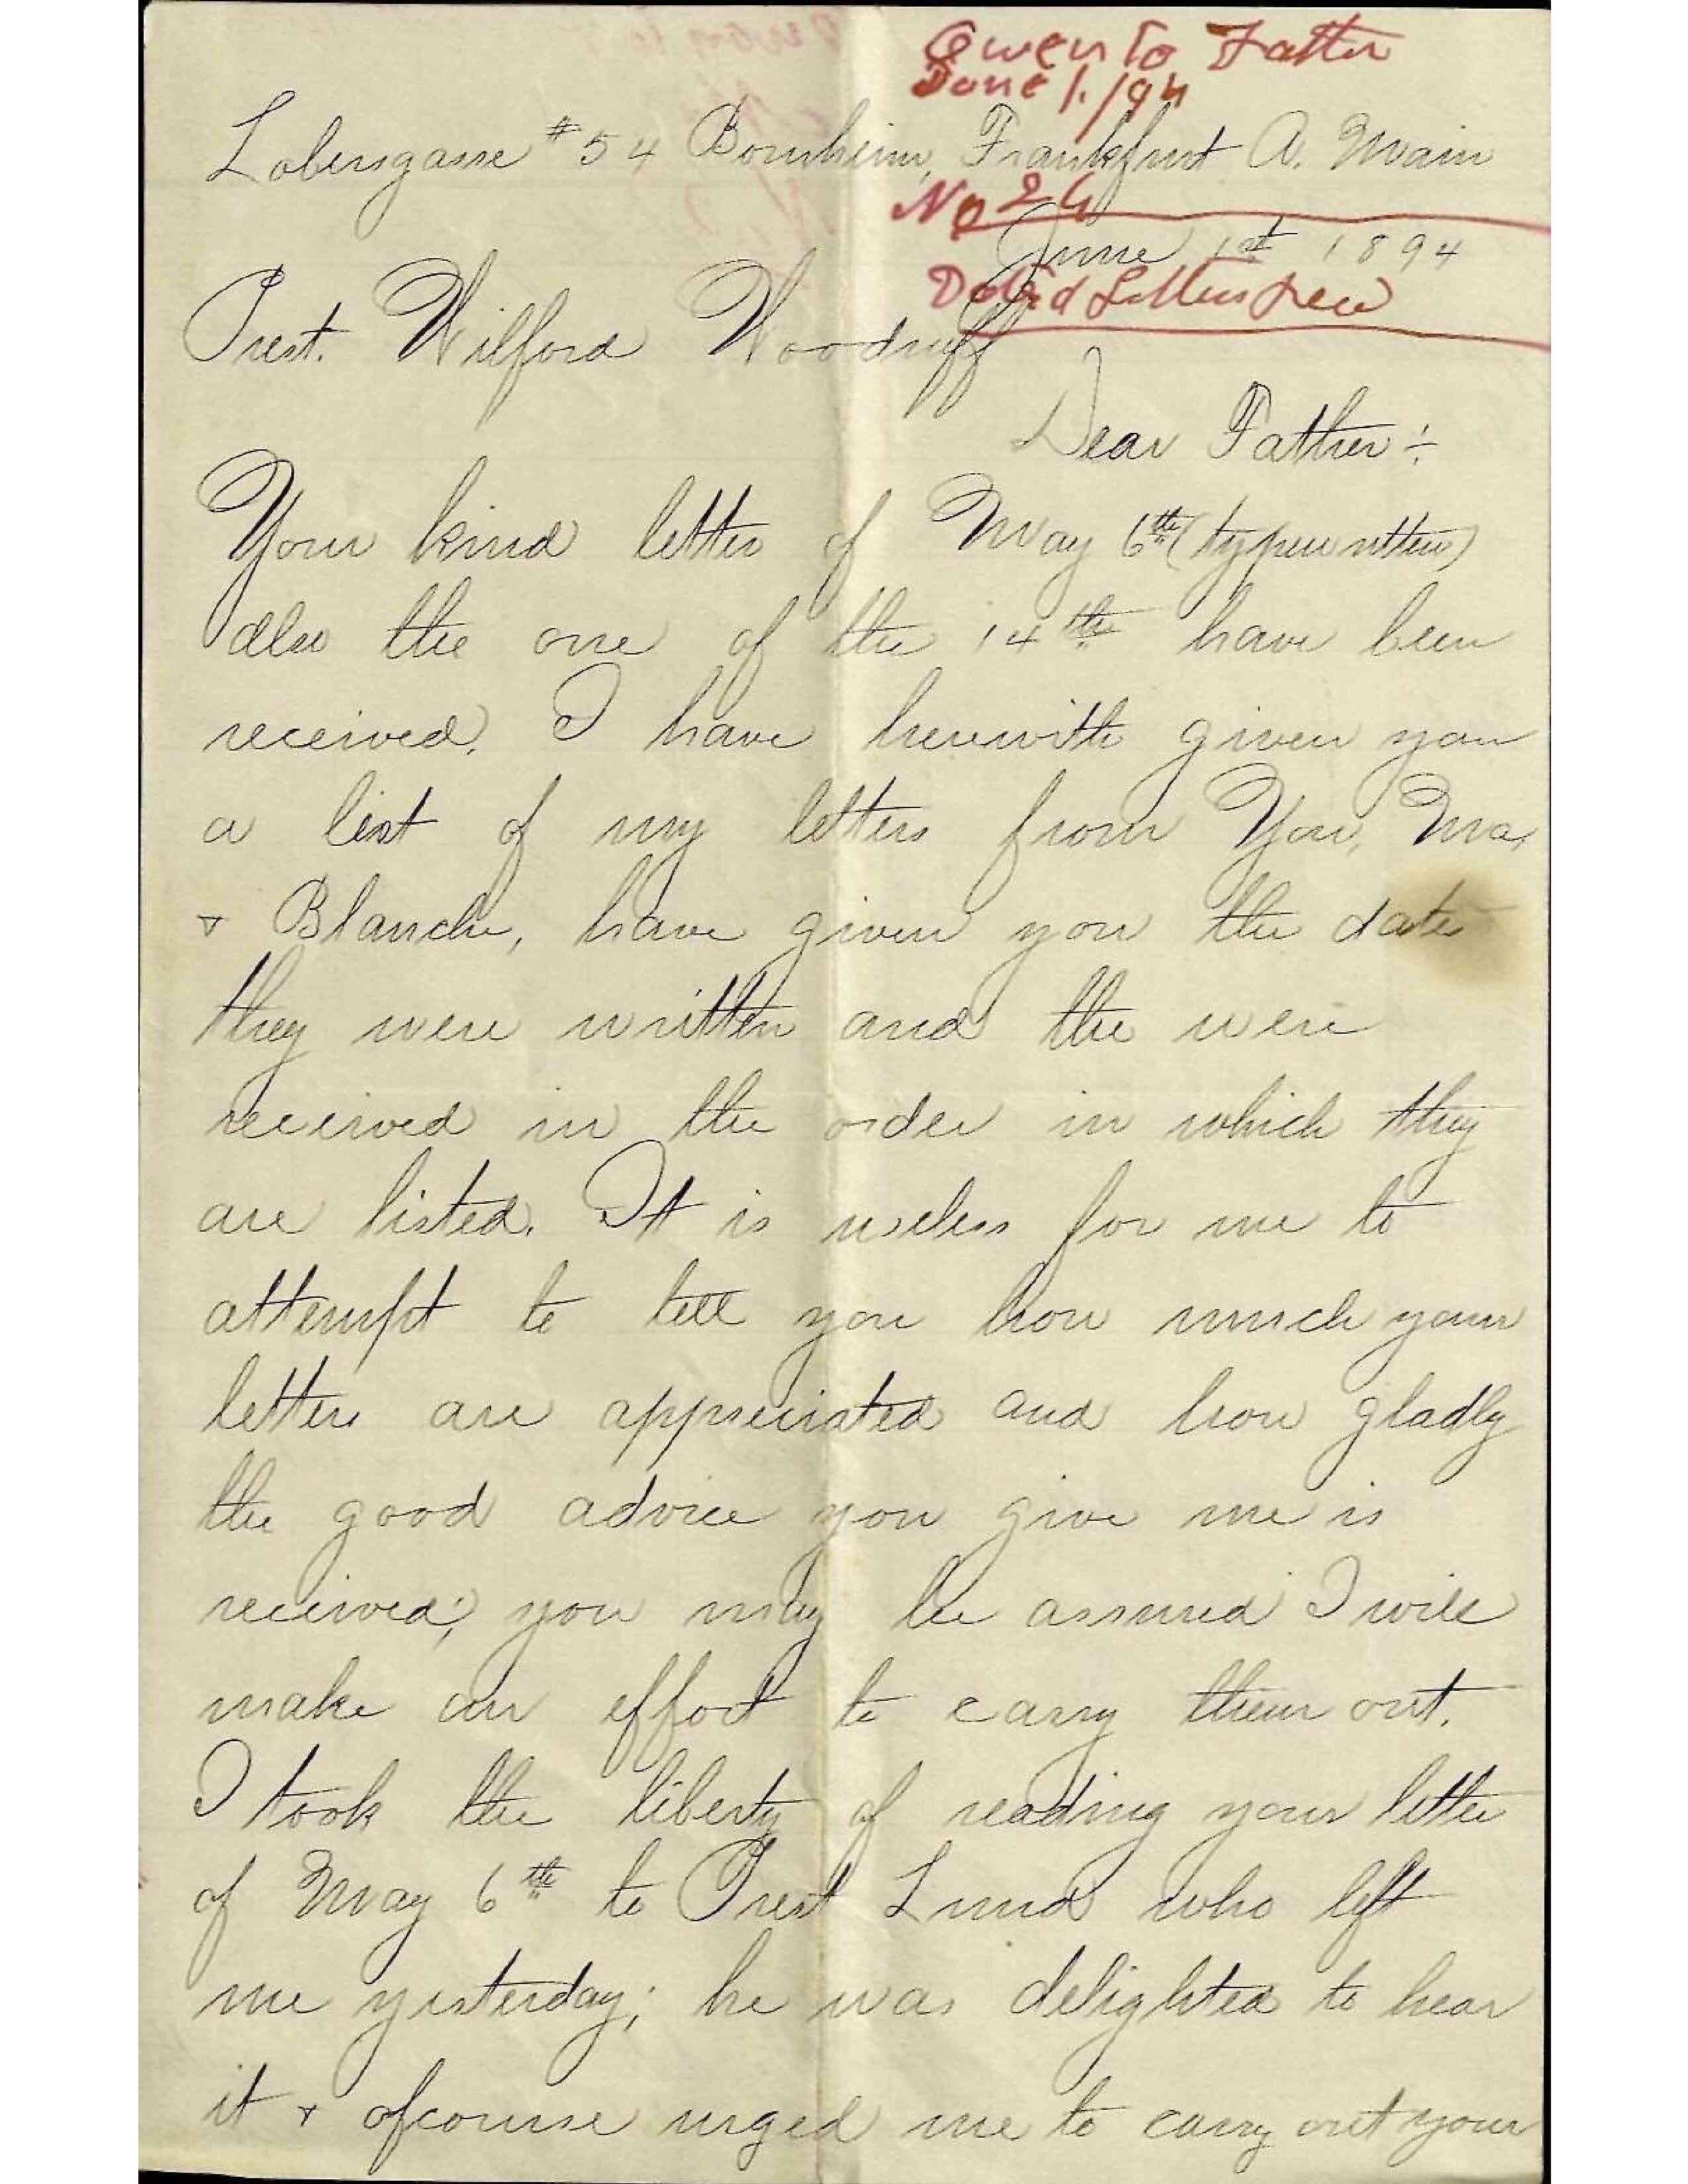 Owen to Father
June 1. /94
Lobersgasse #54 Bornheim, Frankfurt A. Main
No 24
June 1st 1894
Dated Letters Recd
Prest. Wilford Woodruff
Dear Father:
Your kind letter of May 6th (typewritten)
also the one of the 14th have been
received. I have herewith given you
a list of my letters from You, Ma,
& Blanche, have given you the date
they were written and the were
received in the order in which they
are listed. It is useless for me to
attempt to tell you how much your
letters are appreciated and how gladly
the good advice you give me is
received; you may be assured I will
make an effort to carry them out.
I took the liberty of reading your letter
of May 6th to Prest Lund who left
me yesterday; he was delighted to hear
it & ofcourse urged me to carry out your